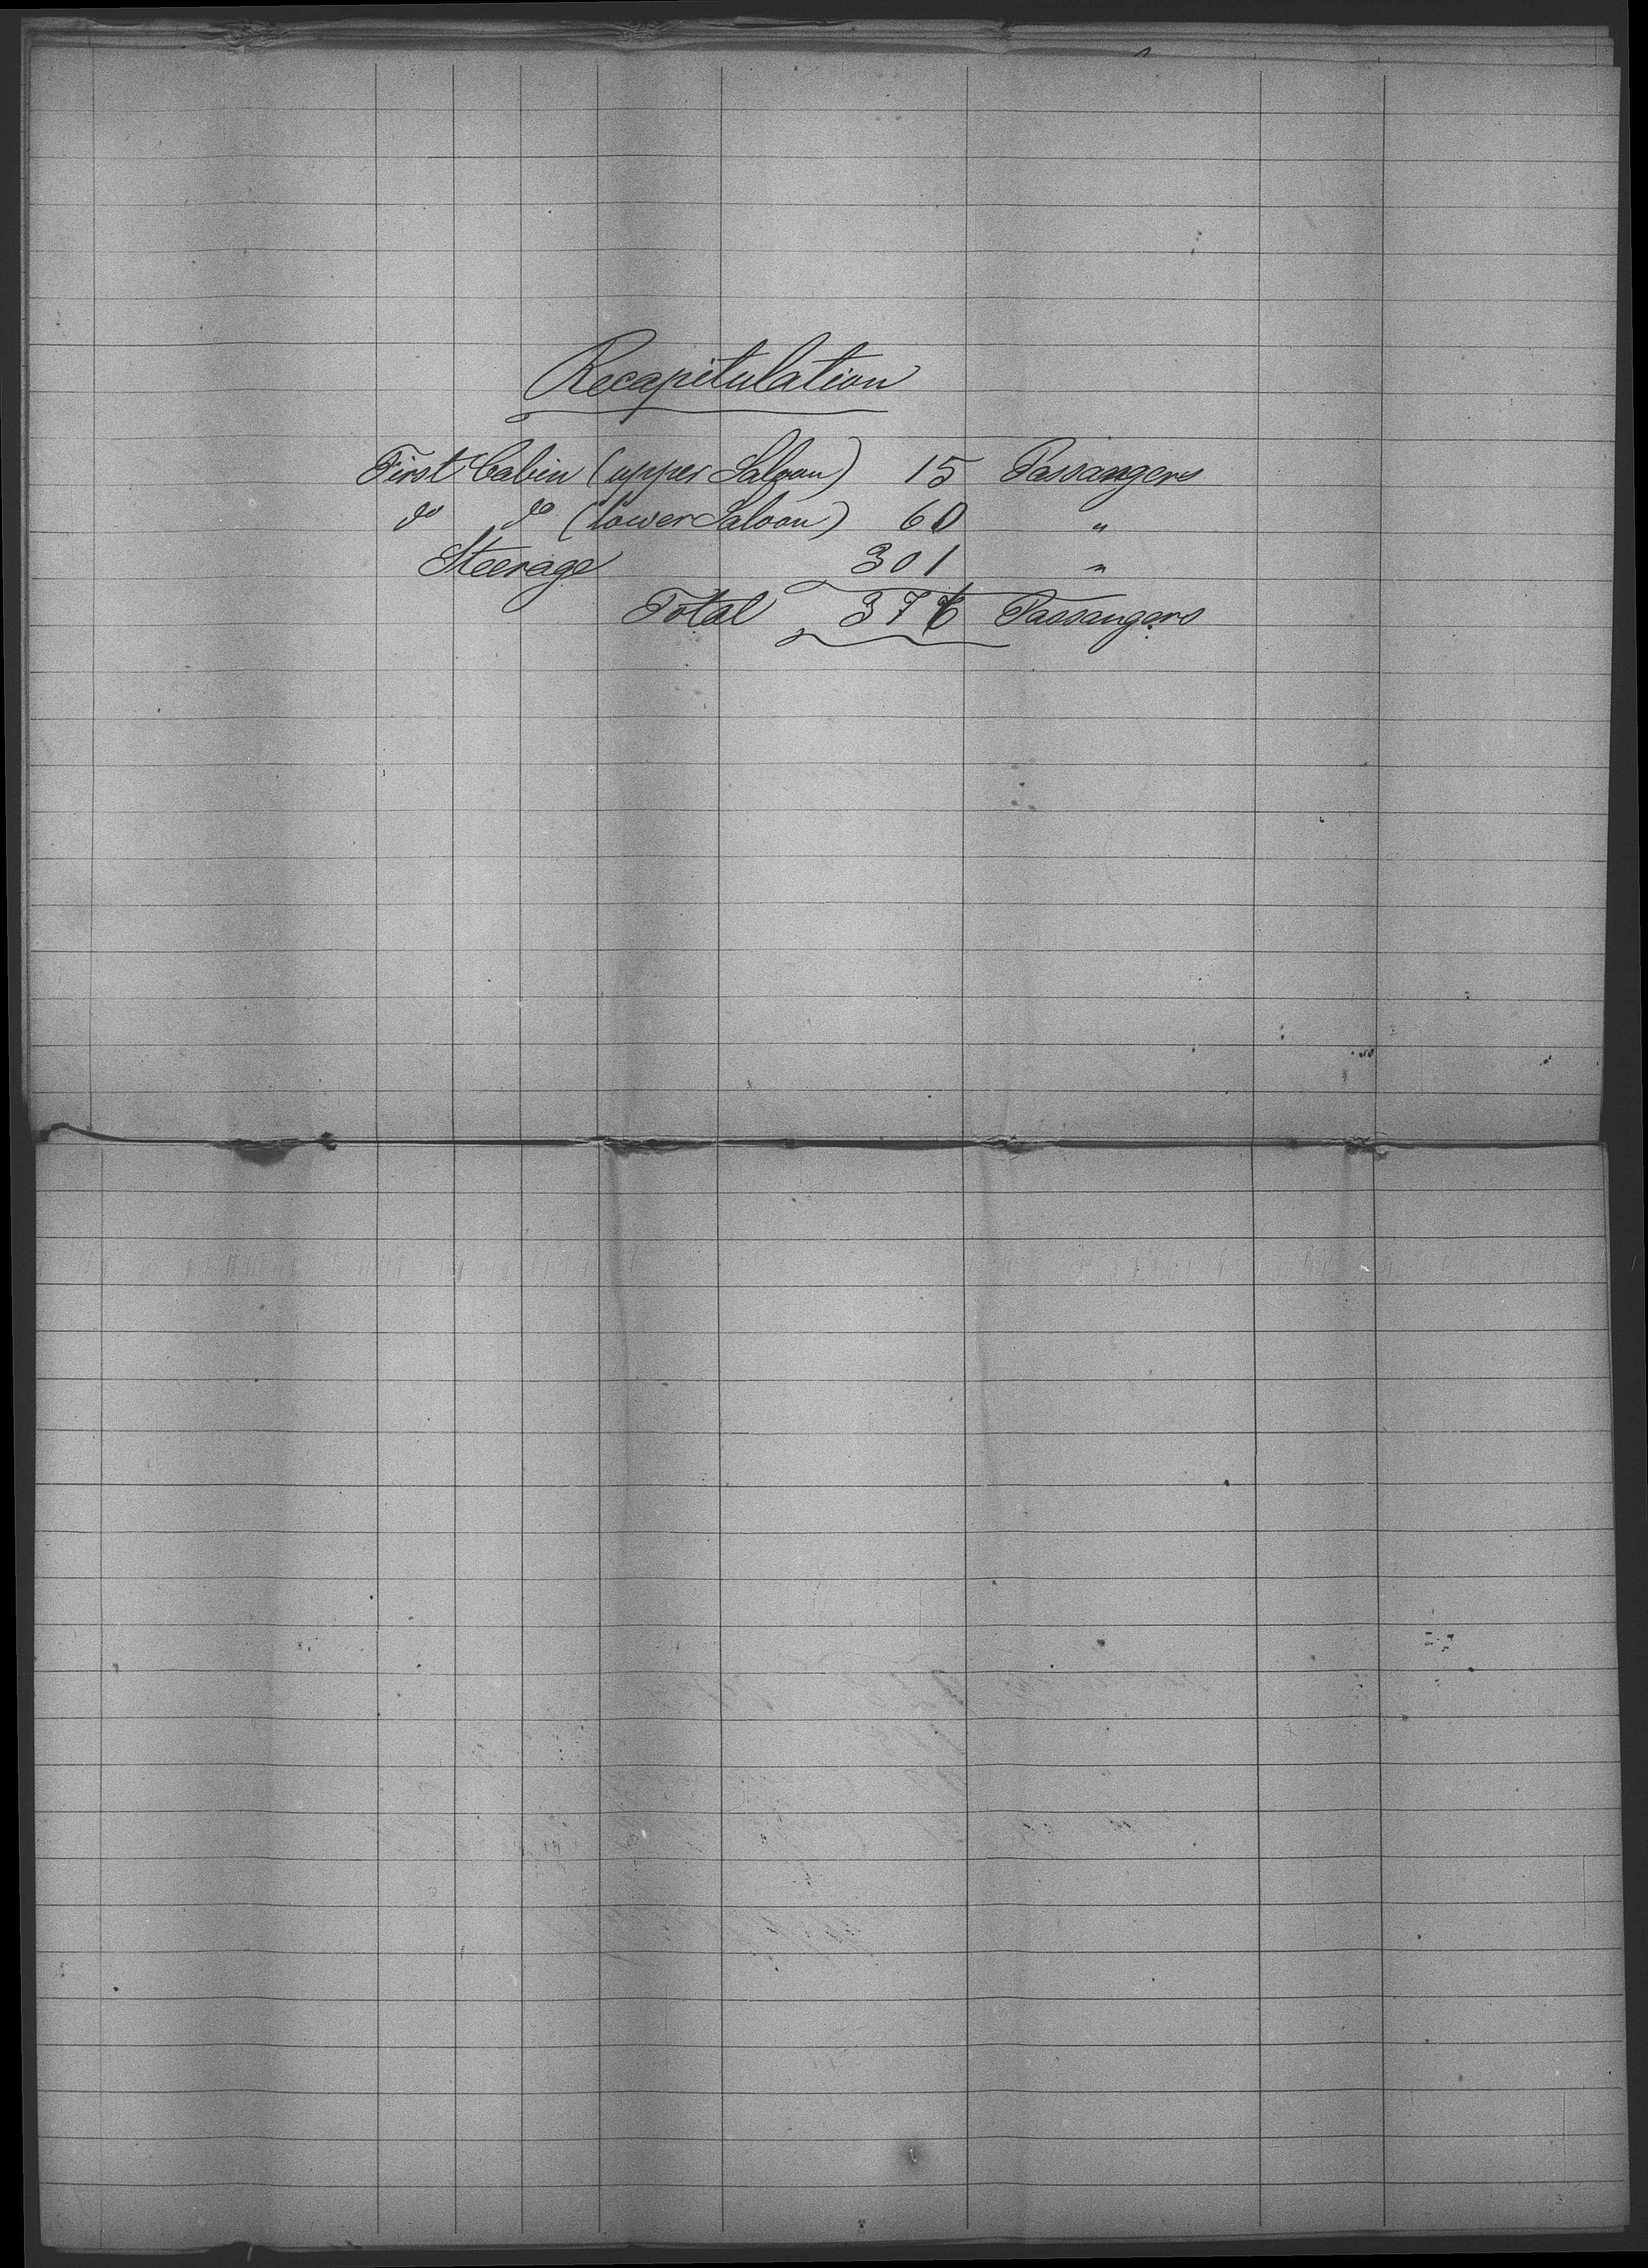 Recapitulation
First Cabin (upper Saloon) 15 Passangers
do do (lower Saloon) 60 "
Steerage 301 "
Total 376 Passangers